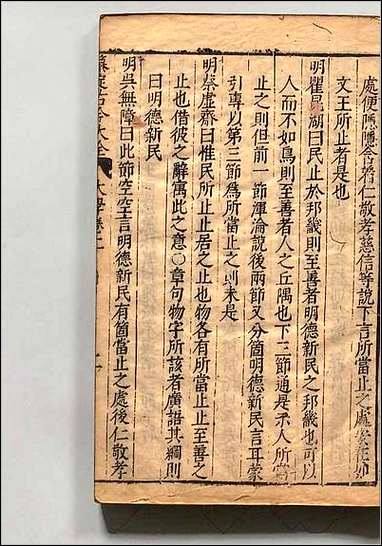 處便隱隱含著仁敬孝慈信等說下言所當止之處
文王所止者是也
明瞿昆湖曰民止於邦畿則至善者明德新民之邦畿也可以
人而不如鳥則至善者人之丘隅也下三節通是示人所當
止之則但前一節渾淪說後兩節又分箇明德新民言耳蒙
引專以第三節爲所當止之則未是
明蔡虛齋曰惟民所止止居之止也物各有所當止止至善之
止也借彼之辭寓此之意○章句物字所該者廣語其綱則
曰明德新民
明吳無障曰此節空空言明德新民有箇當止之處後仁敬孝
古今大全 大學卷二